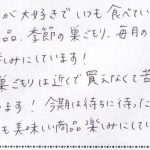 が大好きでいつも食べてい
品、季節の巣ごもり、毎月の
しみにしています!
巣ごもりは近くで買えなくて苦
ます! 今期は待ちに待った
も美味しい商品楽しみにしてい